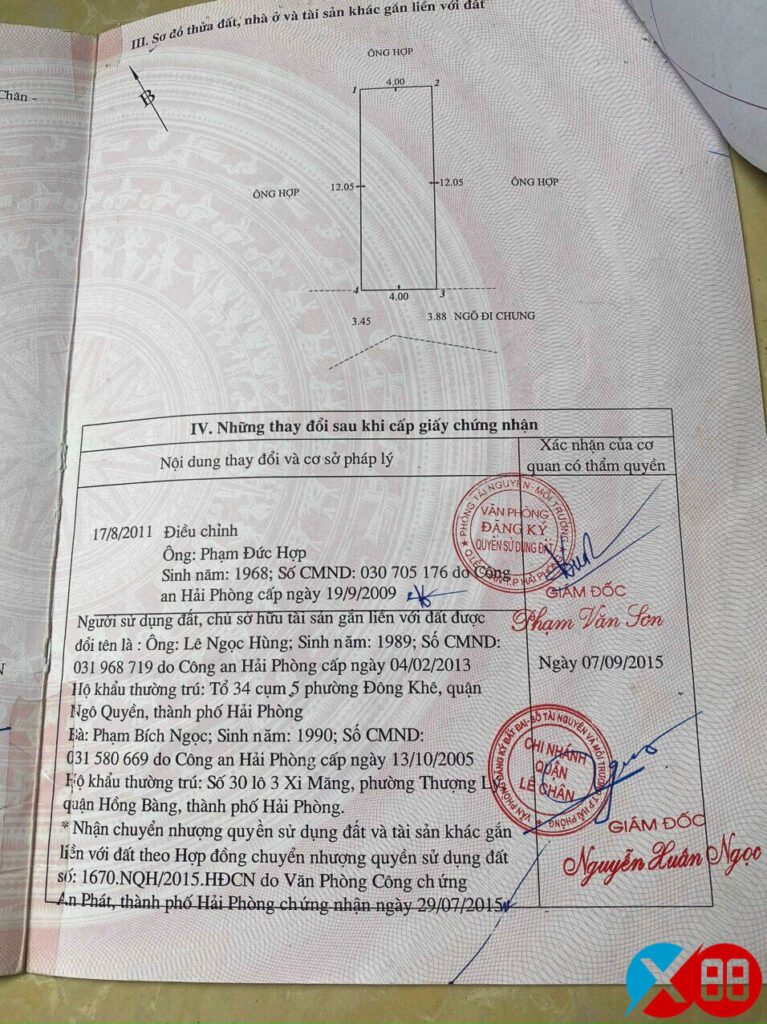 Chân -
III. Sơ đồ thửa đất, nhà ở và tài sản khác gắn liền với đất
B
ÔNG HỢP
1 4.00 2
ÔNG HỢP 12.05 12.05 ÔNG HỢP
4 4.00 3
3.45 3.88 NGÕ ĐI CHUNG
IV. Những thay đổi sau khi cấp giấy chứng nhận
Nội dung thay đổi và cơ sở pháp lý
Xác nhận của cơ
quan có thẩm quyền
17/8/2011 Điều chỉnh
Ông: Phạm Đức Hợp
Sinh năm: 1968; Số CMND: 030 705 176 do Công
an Hải Phòng cấp ngày 19/9/2009
PHÒNG TÀI NGUYÊN - MÔI TRƯỜNG
VĂN PHÒNG
ĐĂNG KÝ
QUYỀN SỬ DỤNG ĐẤT
GIÁM ĐỐC
Phạm Văn Sơn
Người sử dụng đất, chủ sở hữu tài sản gắn liền với đất được
đổi tên là : Ông: Lê Ngọc Hùng; Sinh năm: 1989; Số CMND:
031 968 719 do Công an Hải Phòng cấp ngày 04/02/2013
Hộ khẩu thường trú: Tổ 34 cụm 5 phường Đông Khê, quận
Ngô Quyền, thành phố Hải Phòng
Bà: Phạm Bích Ngọc; Sinh năm: 1990; Số CMND:
031 580 669 do Công an Hải Phòng cấp ngày 13/10/2005
Hộ khẩu thường trú: Số 30 lô 3 Xi Măng, phường Thượng Lý,
quận Hồng Bàng, thành phố Hải Phòng.
* Nhận chuyển nhượng quyền sử dụng đất và tài sản khác gắn
liền với đất theo Hợp đồng chuyển nhượng quyền sử dụng đất
số: 1670.NQH/2015.HĐCN do Văn Phòng Công chứng
An Phát, thành phố Hải Phòng chứng nhận ngày 29/07/2015
Ngày 07/09/2015
VĂN PHÒNG ĐĂNG KÝ ĐẤT ĐAI-SỞ TÀI NGUYÊN VÀ MÔI TRƯỜNG T.P HẢI PHÒNG
CHI NHÁNH
QUẬN
LÊ CHÂN
GIÁM ĐỐC
Nguyễn Xuân Ngọc
X88